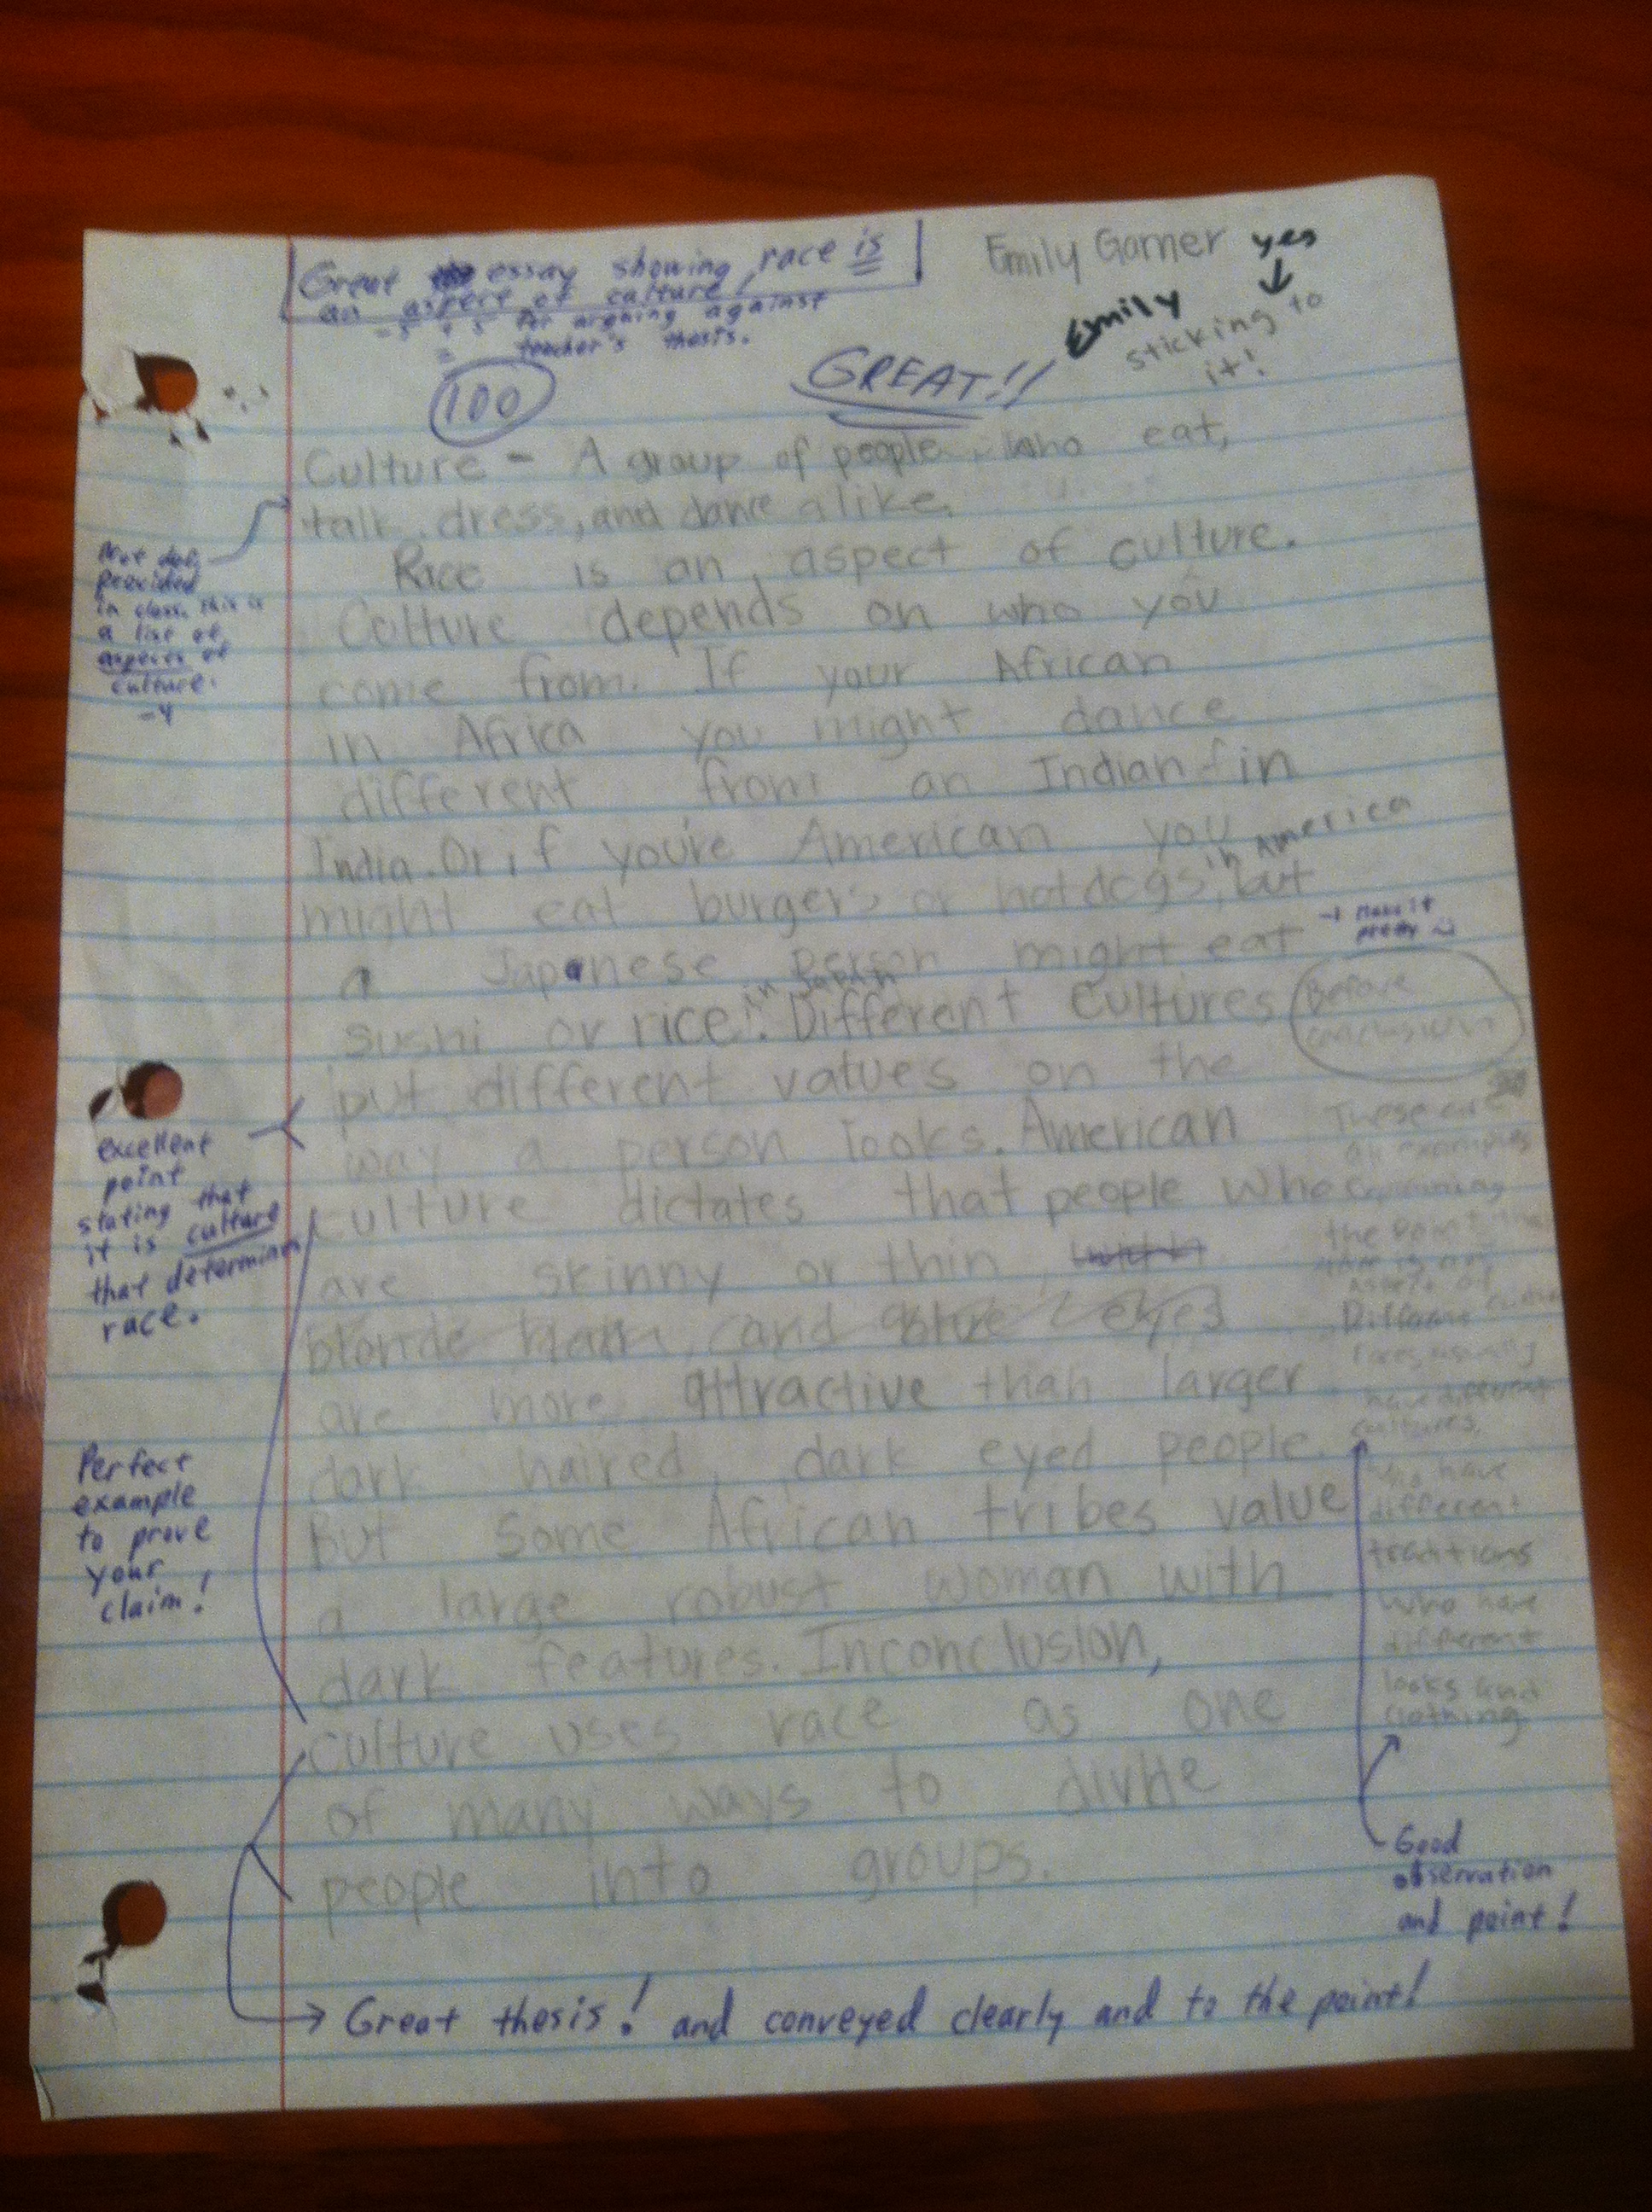 Great essay showing race is
an aspect of culture!
-5 +5 for arguing against
= teacher's thesis.
100
GREAT!!
Emily Garner
yes
Emily
sticking to
it!
Culture - A group of people who eat,
talk, dress, and dance alike.
Race is an aspect of culture.
Culture depends on who you
come from. If your African
in Africa you might dance
different from an Indian in
India. Or if you're American you
might eat burgers or hotdogs in America, but
a Japanese person might eat
sushi or rice in Japan. Different cultures
put different values on the
way a person looks. American
culture dictates that people who
are skinny or thin,
blonde hair, and blue eyes
are more attractive than larger
dark haired, dark eyed people.
But some African tribes value
a large robust woman with
dark features. In conclusion,
culture uses race as one
of many ways to divide
people into groups.
Not def.
provided
in class. This is
a list of
aspects of
culture.
-4
excellent
point
stating that
it is culture
that determines
race.
Perfect
example
to prove
your
claim!
Make it
pretty
Before
conclusion
These are
all examples
the point that
Different
races usually
have different
cultures.
who have
different
traditions
who have
different
looks and
clothing.
Good
observation
and point!
Great thesis! and conveyed clearly and to the point!